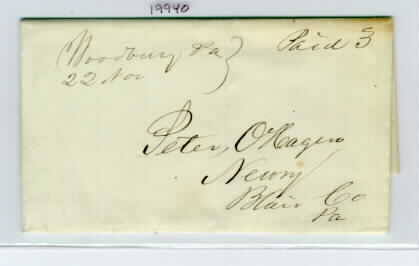 19940
Woodbury Pa
22 Nov
Paid 3
Peter O'Hagen
Newry
Blair Co
Pa